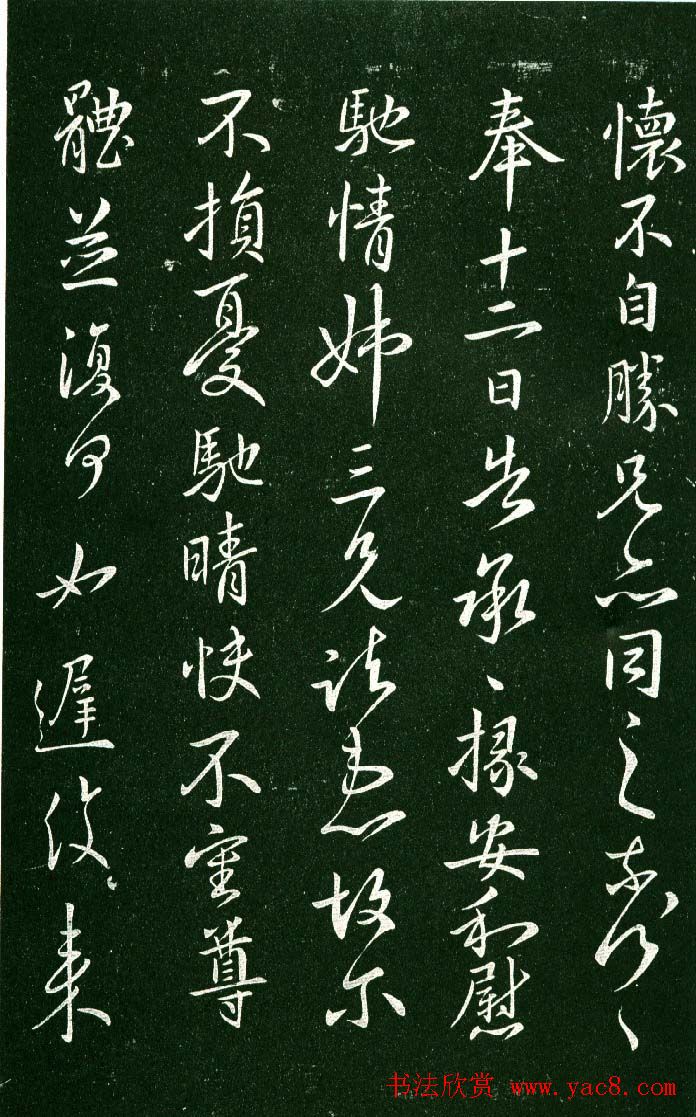 懷不自勝兄亦同之
奉十二日告承〻掾安和慰
馳情姊三兄諸患故尔
不損憂馳晴快不審尊
體並復何如遲復〻來
书法欣赏 www.yac8.com